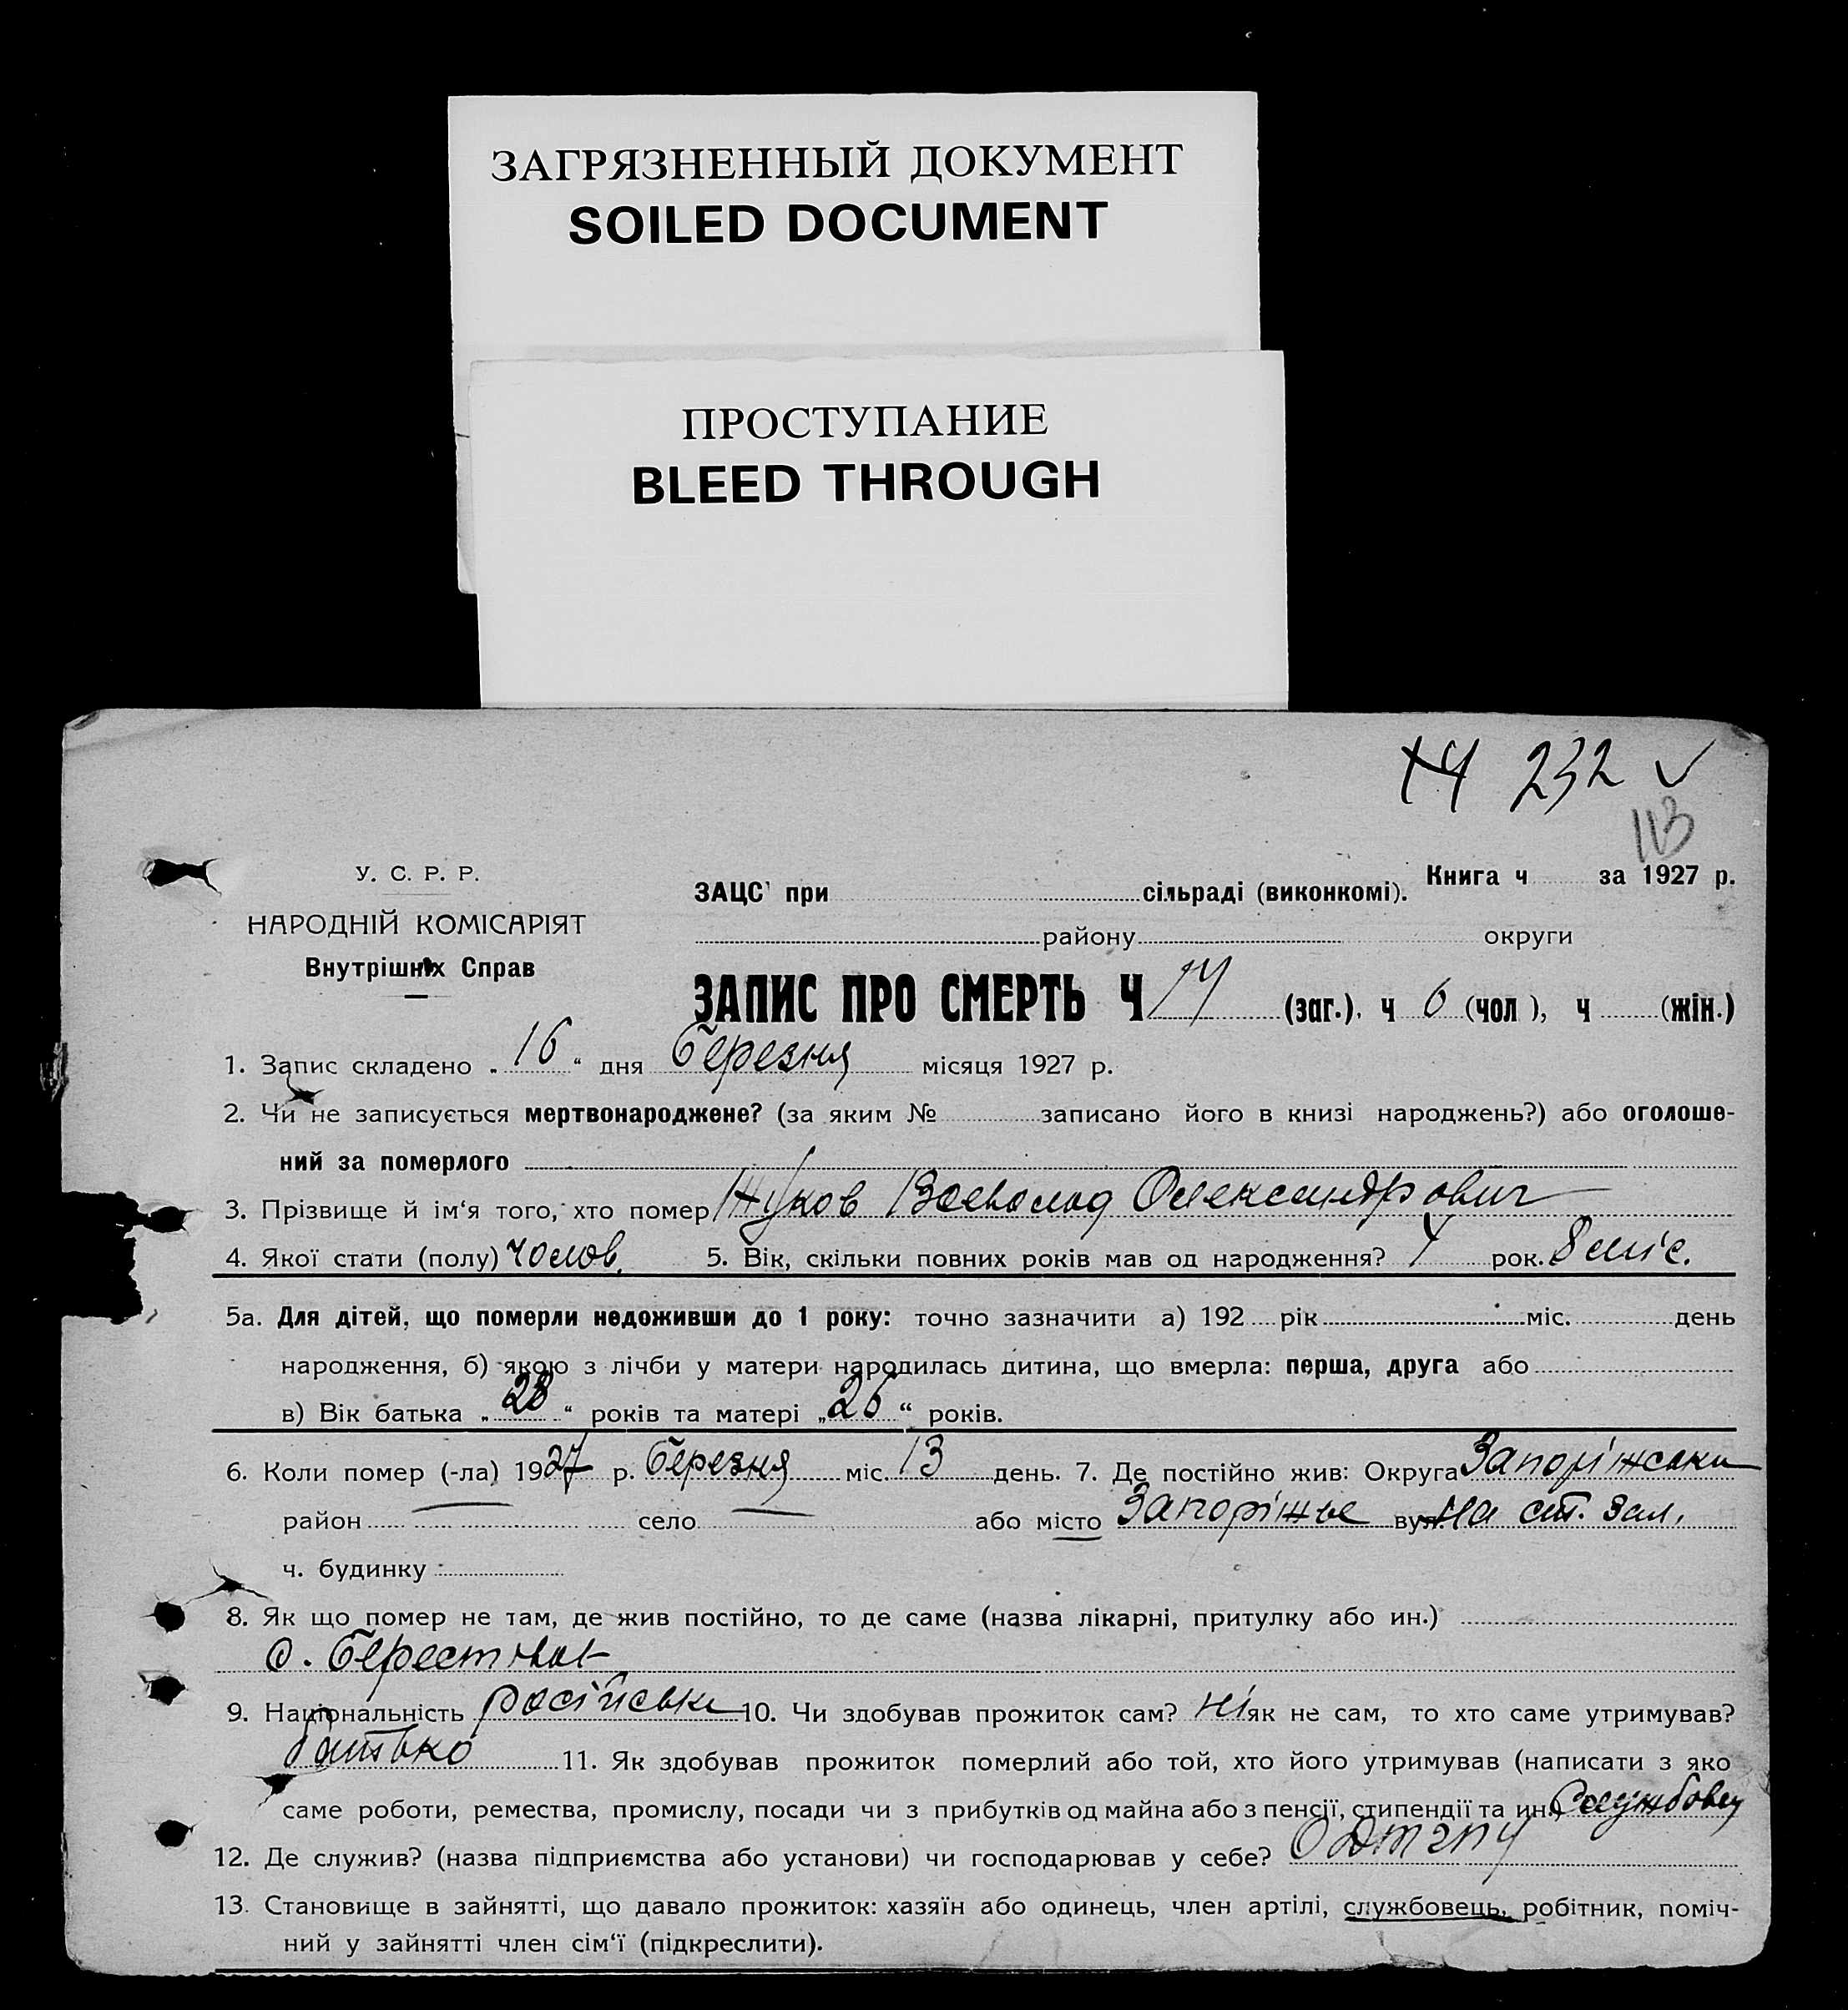 ЗАГРЯЗНЕННЫЙ ДОКУМЕНТ
SOILED DOCUMENT
ПРОСТУПАНИЕ
BLEED THROUGH
232 ✓
113
У. С. Р. Р.
НАРОДНІЙ КОМІСАРІЯТ
Внутрішніх Справ
Книга ч за 1927 р.
ЗАЦС при сільраді (виконкомі).
району округи
ЗАПИС ПРО СМЕРТЬ Ч 14 (заг.). ч 6 (чол ), ч (жін.)
1. Запис складено „ 16 “ дня березня місяця 1927 р.
2. Чи не записується мертвонароджене? (за яким № записано його в книзі народжень?) або оголоше-
ний за померлого
3. Прізвище й ім‘я того, хто помер Жуков Всеволод Олександрович
4. Якої стати (полу) чолов. 5. Вік, скільки повних років мав од народження? рок. 8 міс.
5а. Для дітей, що померли недоживши до 1 року: точно зазначити а) 192 рік міс. день
народження, б) якою з лічби у матери народилась дитина, що вмерла: перша, друга або
в) Вік батька „ 28 “ років та матері „ 26 “ років.
6. Коли помер (-ла) 1927 р. березня міс. 13 день. 7. Де постійно жив: Округа Запоріжська
район — село — або місто Запоріжье вул. на ст. Зап.
ч. будинку
8. Як що помер не там, де жив постійно, то де саме (назва лікарні, притулку або ин.)
9. Національність російська 10. Чи здобував прожиток сам? ні як не сам, то хто саме утримував?
батько 11. Як здобував прожиток померлий або той, хто його утримував (написати з яко
саме роботи, ремества, промислу, посади чи з прибутків од майна або з пенсії, стипендії та ин.) службовец
12. Де служив? (назва підприємства або установи) чи господарював у себе? ОДТ ГПУ
13. Становище в зайнятті, що давало прожиток: хазяїн або одинець, член артілі, службовець, робітник, поміч-
ний у зайнятті член сім‘ї (підкреслити).